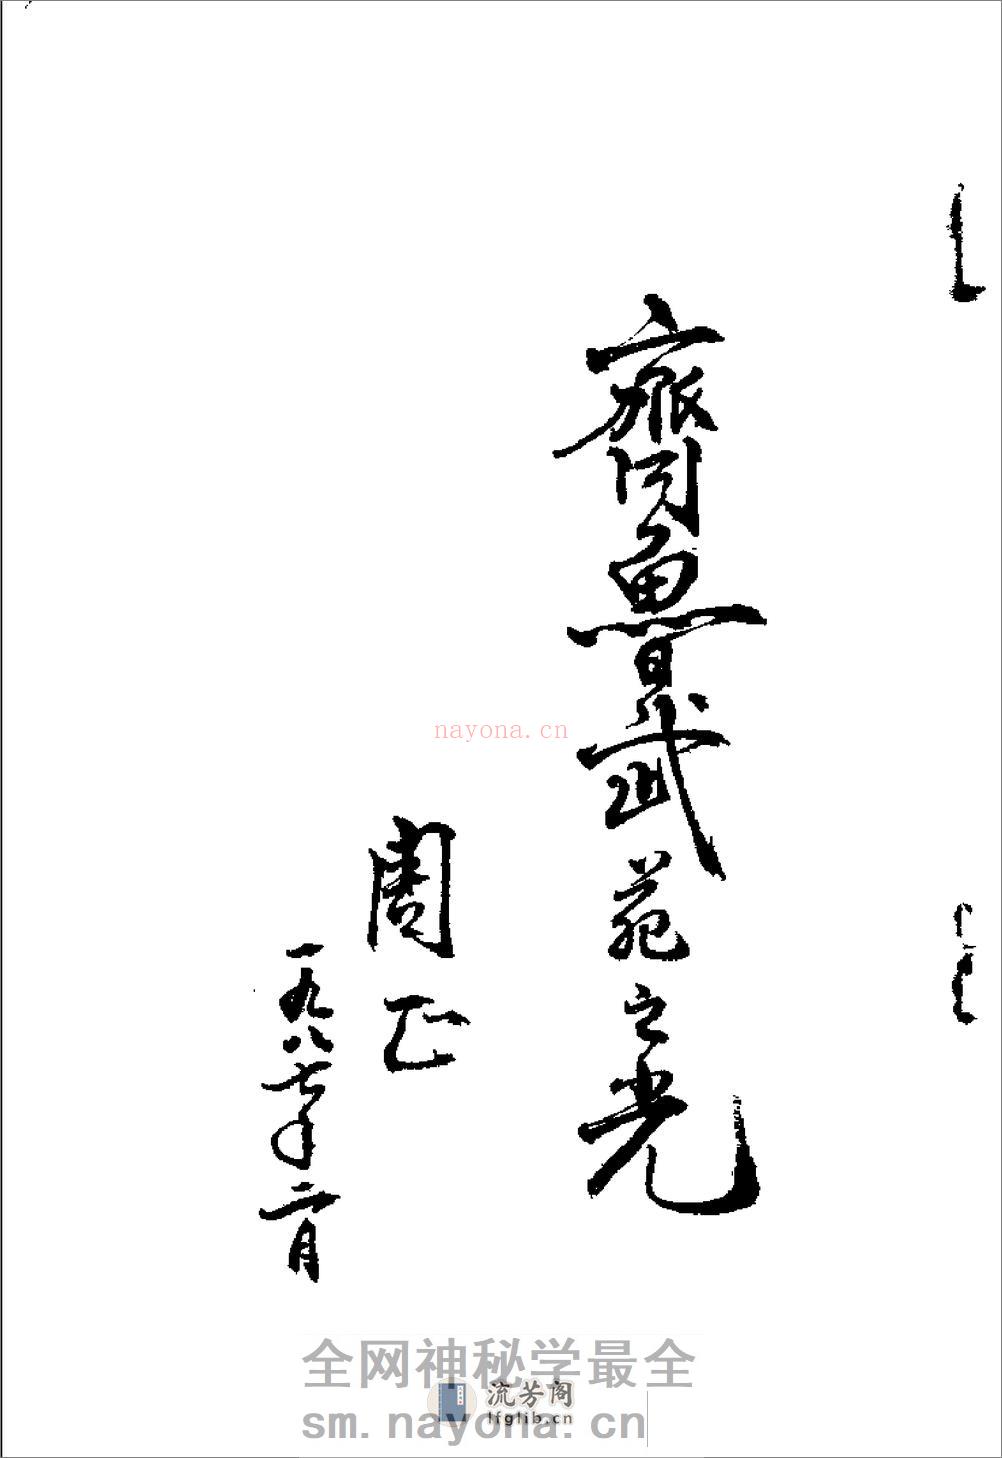 齊魯武苑之光
周正
一九八七年二月
nayona.cn
全网神秘学最全
流芳阁
lfglib.cn
sm.nayona.cn